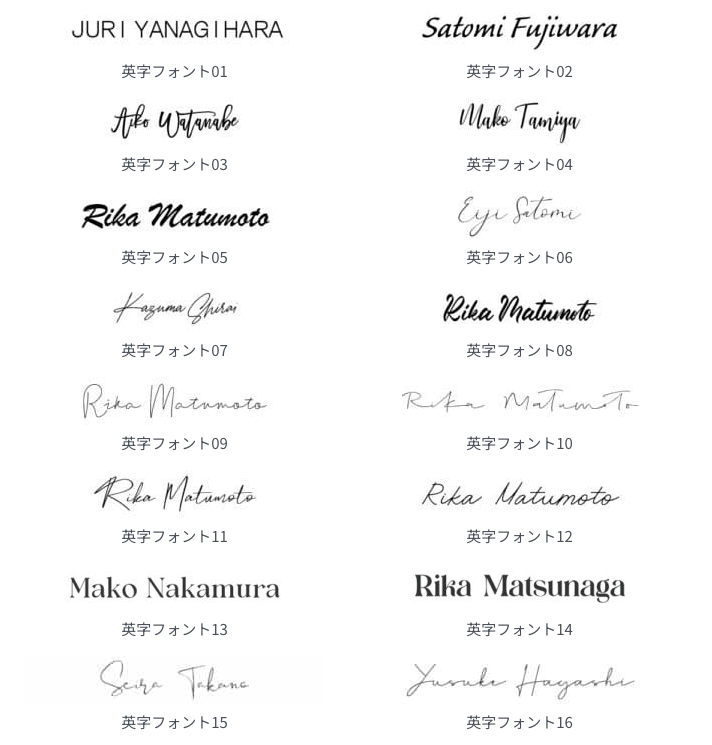 JURI YANAGIHARA
Satomi Fujiwara
英字フォント01
英字フォント02
Aiko Watanabe
Mako Tamiya
英字フォント03
英字フォント04
Rika Matumoto
Eiji Satomi
英字フォント05
英字フォント06
Kazuma Shirai
Rika Matumoto
英字フォント07
英字フォント08
Rika Matumoto
Rika MaTumoTo
英字フォント09
英字フォント10
Rika Matumoto
Rika Matumoto
英字フォント11
英字フォント12
Mako Nakamura
Rika Matsunaga
英字フォント13
英字フォント14
Seira Takano
Yusuke Hayashi
英字フォント15
英字フォント16